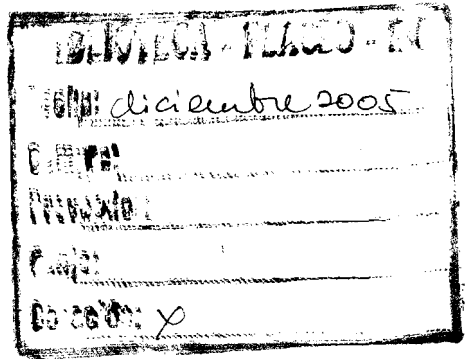 BIBLIOTECA - FLACSO - EC
Fecha: diciembre 2005
Compra:
Proveedor:
Canje:
Donación: X